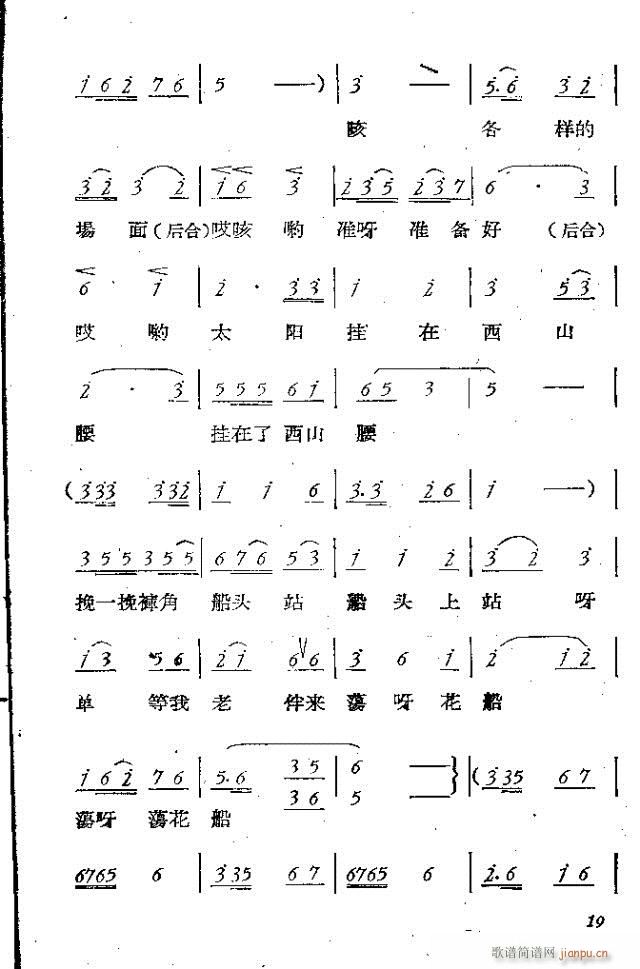 i 6 2 7 6 | 5 — ) | 3 — | 5. 6 3 2 |
咳 各 样的
3 2 3 2 | i 6 3 | 2 3 5 2 3 7 | 6 · 3 |
場 面(后合)哎咳 喲 准呀 准 备 好 (后合)
6 i | 2 · 3 3 | i 2 | 3 5 3 |
哎 喲 太 阳 挂 在 西 山
2 · 3 | 5 5 5 6 i | 6 5 3 | 5 — |
腰 挂在了 西山 腰
(3 33 3 32 | i i 6 | 3. 3 2 6 | i — )
3 5 5 3 5 5 | 6 7 6 5 3 | i i 2 | 3 2 3 |
挽一挽褲角 船头 站 船 头 上 站 呀
i 3 5 6 | 2 i 6 6 | 3 6 i | 2 i 2 |
单 等我 老 伴来 蕩 呀 花 船
i 6 2 7 6 | 5. 6 3 5 | 6 — } ( 3 35 6 7 |
3 6 | 5 —
蕩呀 蕩花 船
6765 6 | 3 35 6 7 | 6765 6 | 2. 6 i 6 |
19
歌谱简谱网 jianpu.cn